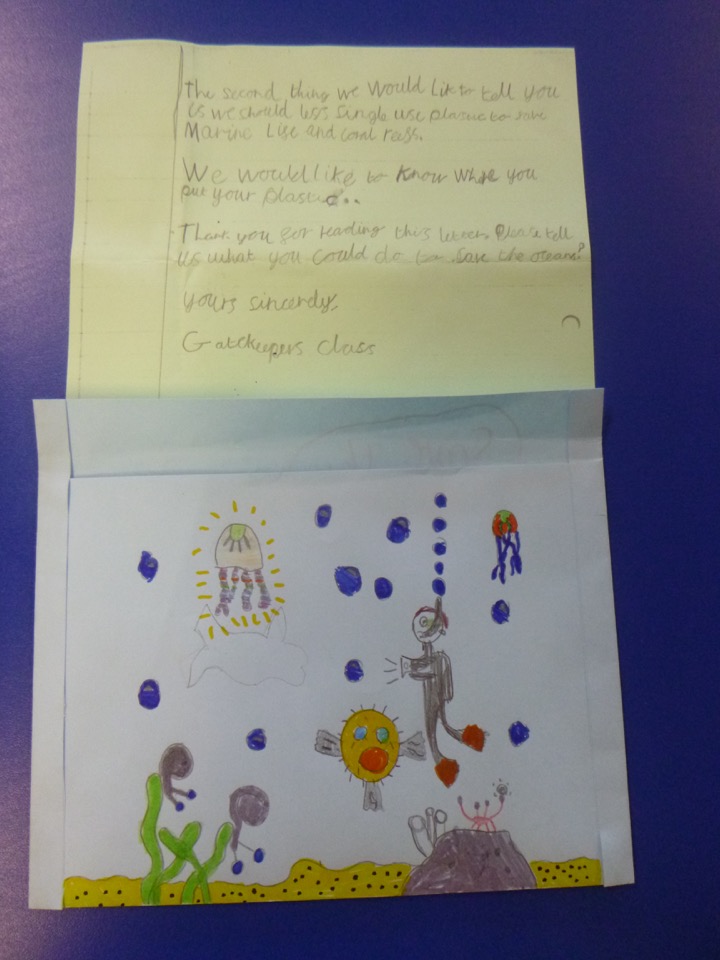 The second thing we would Lik to tell you
is we should less single use plastic to save
Marine Life and coral reefs.
We would like to know where you
put your plastic..
Thank you for reading this letter. Please tell
us what you could do to save the oceans?
yours sincerely,
Gatekeepers class